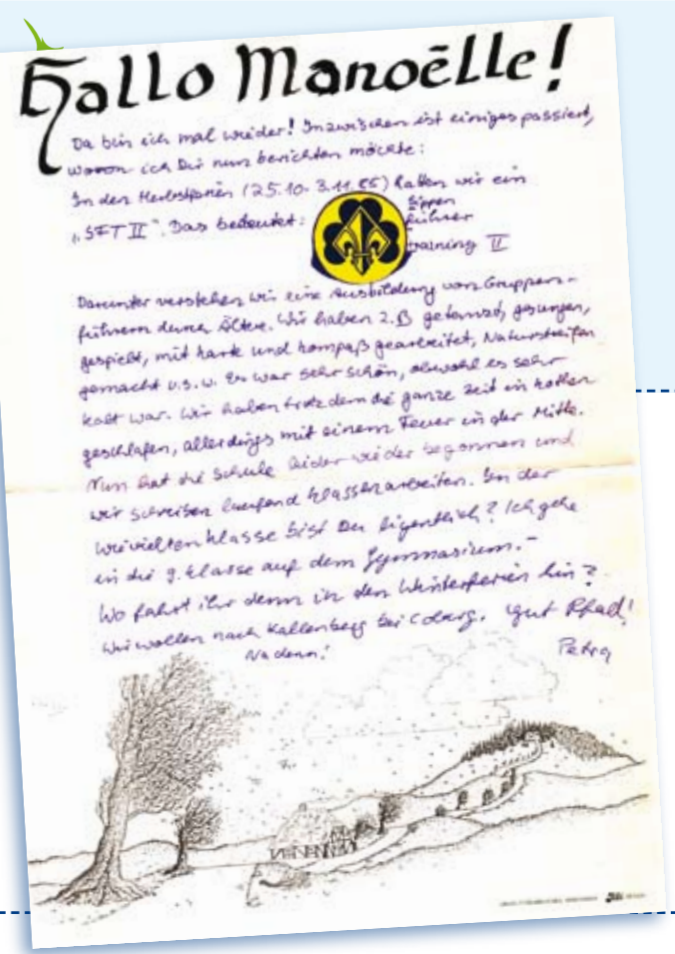 Hallo Manoëlle!
Da bin ich mal wieder! Inzwischen ist einiges passiert,
wovon ich Dir nun berichten möchte:
In den Herbstferien (25.10-3.11.85) hatten wir ein
„SFT II“. Das bedeutet:
Sippen
führer
training II
Darunter verstehen wir eine Ausbildung von Gruppen-
führern durch Ältere. Wir haben z.B getanzt, gesungen,
gespielt, mit Karte und Kompaß gearbeitet, Naturstreifen
gemacht u.s.w. Es war sehr schön, obwohl es sehr
kalt war. Wir haben trotzdem die ganze Zeit in Kothen
geschlafen, allerdings mit einem Feuer in der Mitte.
Nun hat die Schule leider wieder begonnen und
wir schreiben laufend Klassenarbeiten. In der
wievielten Klasse bist Du eigentlich? Ich gehe
in die 9. Klasse auf dem Gymnasium.-
Wo fahrt ihr denn in den Winterferien hin?
Wir wollen nach Kallenberg bei Coburg. Gut Pfad!
Na denn!
Petra